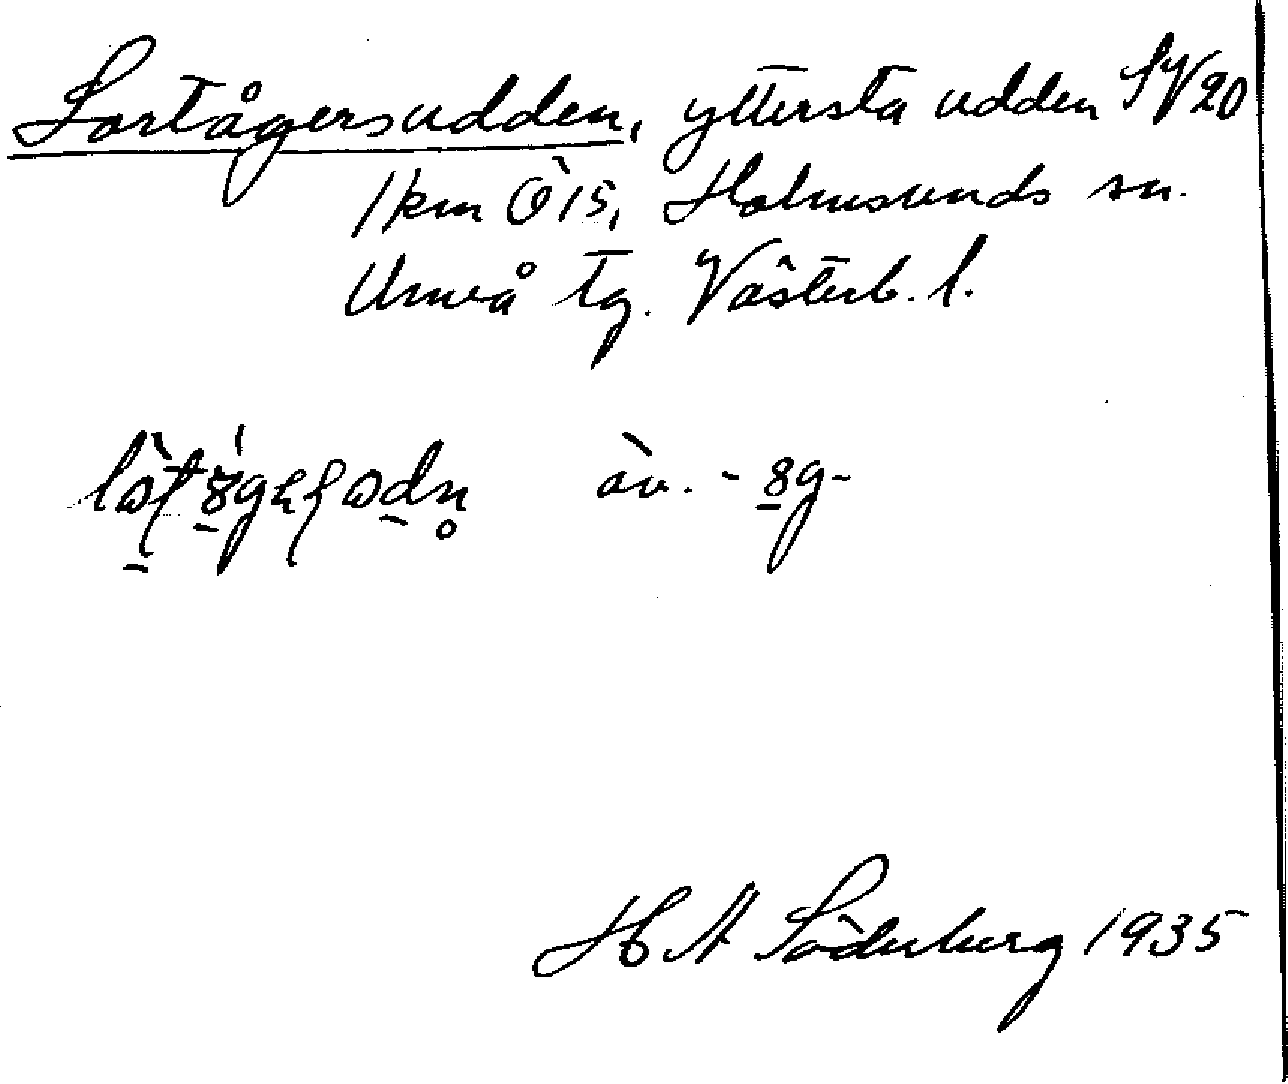 Lortågersudden, yttersta udden SV 20
1 km Ö 15, Holmsunds sn.
Umeå tg. Västerb. l.
äv. - 8g-
H A Söderberg 1935